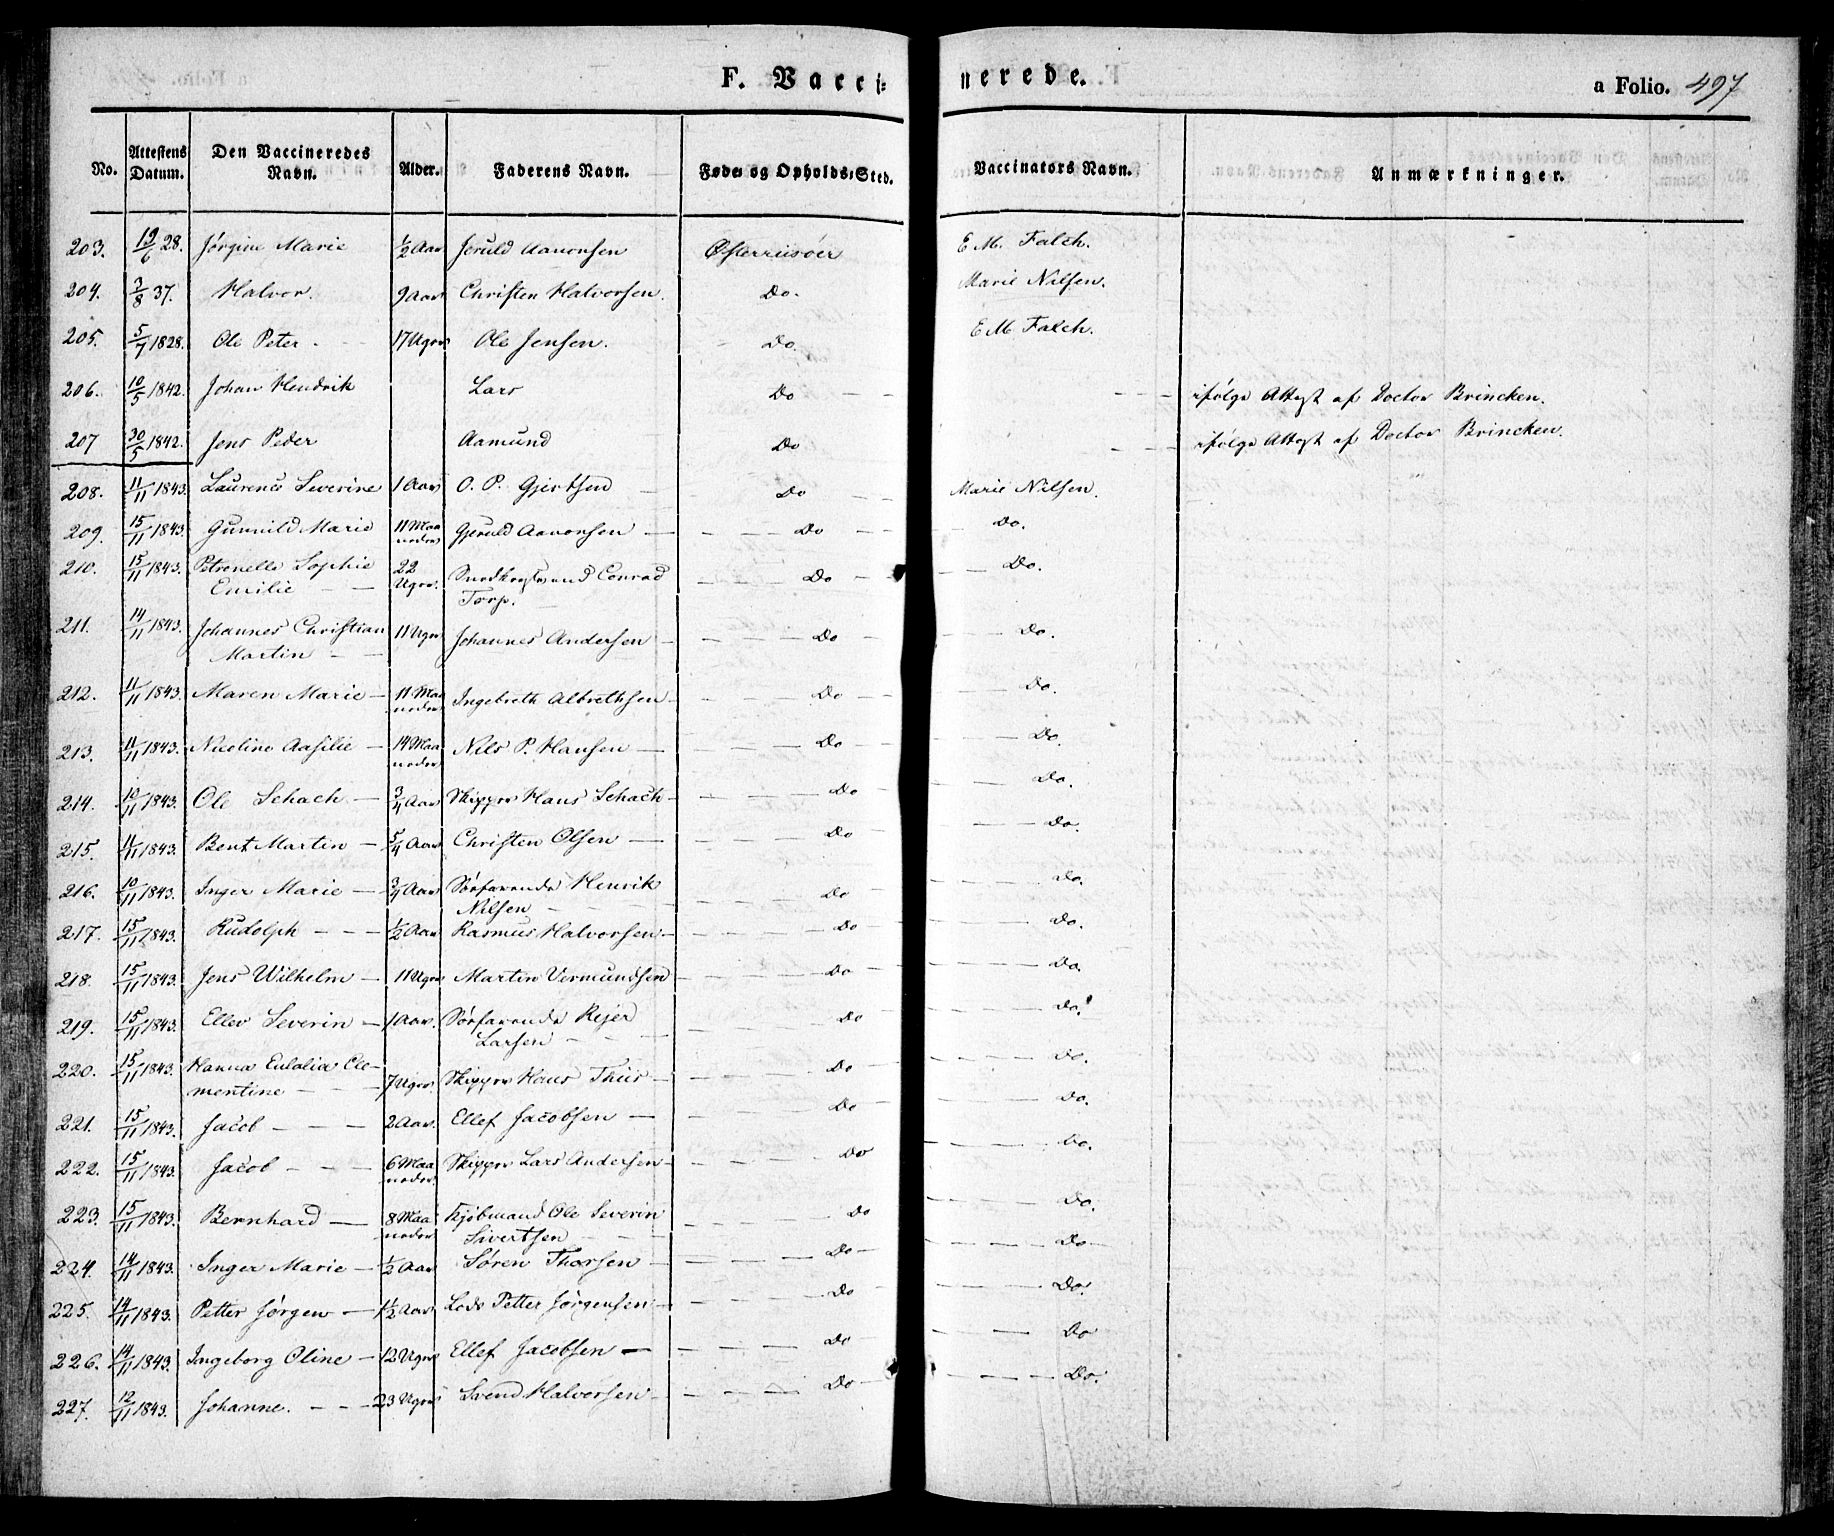 F. Vaccinerede.
a Folio. 497
No. | Attestens Datum. | Den Vaccineredes Navn. | Alder. | Faderens Navn. | Føde og Opholds-Sted. | Vaccinators Navn. | Anmærkninger.
203. | 19/6 28. | Jørgine Marie | 1/2 Aar | Jeruld Aanonsen | Østerriisöer | E M. Falch.
204. | 3/8 37. | Halvor. | 9 Aar | Christen Halvorsen. | Do. | Marie Nilsen.
205. | 5/7 1828. | Ole Peter. | 17 Uger | Ole Jensen. | Do. | E M. Falch.
206. | 10/5 1842. | Johan Hendrik | Lars | Do | ifølge Attest af Doctor Brincken.
207 | 30/5 1842. | Jens Peder | Aamund | Do | ifølge Attest af Doctor Brincken.
208. | 11/11 1843. | Laurence Severine | 1 Aar | O. P. Gjertsen | Do | Marie Nilsen.
209. | 15/11 1843. | Gunnild Marie | 11 Maaneder | Gjeruld Aanonsen | Do | Do.
210. | 15/11 1843. | Petronelle Sophie Emilie | 22 Uger. | Conrad Torp. | Do | Do.
211. | 14/11 1843. | Johannes Christian Martin | 11 Uger | Johannes Andersen | Do | Do.
212. | 11/11 1843. | Maren Marie | 11 Maaneder | Ingebreth Albrethsen | Do | Do.
213. | 11/11 1843. | Nicoline Aasilie | 14 Maaneder | Nils P. Hansen | Do | Do.
214. | 10/11 1843. | Ole Schach | 3/4 Aar | Skipper Hans Schach | Do | Do.
215. | 11/11 1843. | Bent Martin | 5/4 Aar | Christen Olsen | Do | Do.
216. | 10/11 1843. | Inger Marie | 3/4 Aar | Søefarende Henrik Nilsen | Do | Do.
217. | 15/11 1843. | Rudolph | 1/2 Aar | Rasmus Halvorsen | Do | Do.
218. | 15/11 1843. | Jens Wilhelm | 11 Uger | Martin Vermundsen | Do | Do.
219. | 15/11 1843. | Ellev Severin | 1 Aar. | Søefarende Rejer Larsen | Do | Do.
220. | 15/11 1843. | Hanna Eulalia Clementine | 7 Uger. | Skipper Hans Thiis | Do | Do.
221. | 15/11 1843. | Jacob | 2 Aar. | Ellef Jacobsen | Do | Do.
222. | 15/11 1843. | Jacob | 6 Maaneder | Skipper Lars Andersen | Do | Do.
223. | 15/11 1843. | Bernhard | 8 Maaneder | Kjøbmand Ole Severin Sivertsen | Do | Do.
224. | 14/11 1843. | Inger Marie | 1/2 Aar | Søren Thorsen | Do | Do
225. | 14/11 1843. | Petter Jørgen | 1 1/2 Aar | Lods Petter Jørgensen | Do | Do.
226. | 14/11 1843. | Ingeborg Oline | 12 Uger | Ellef Jacobsen | Do | Do
227. | 12/11 1843. | Johanne. | 23 Uger | Svend Halvorsen | Do | Do.